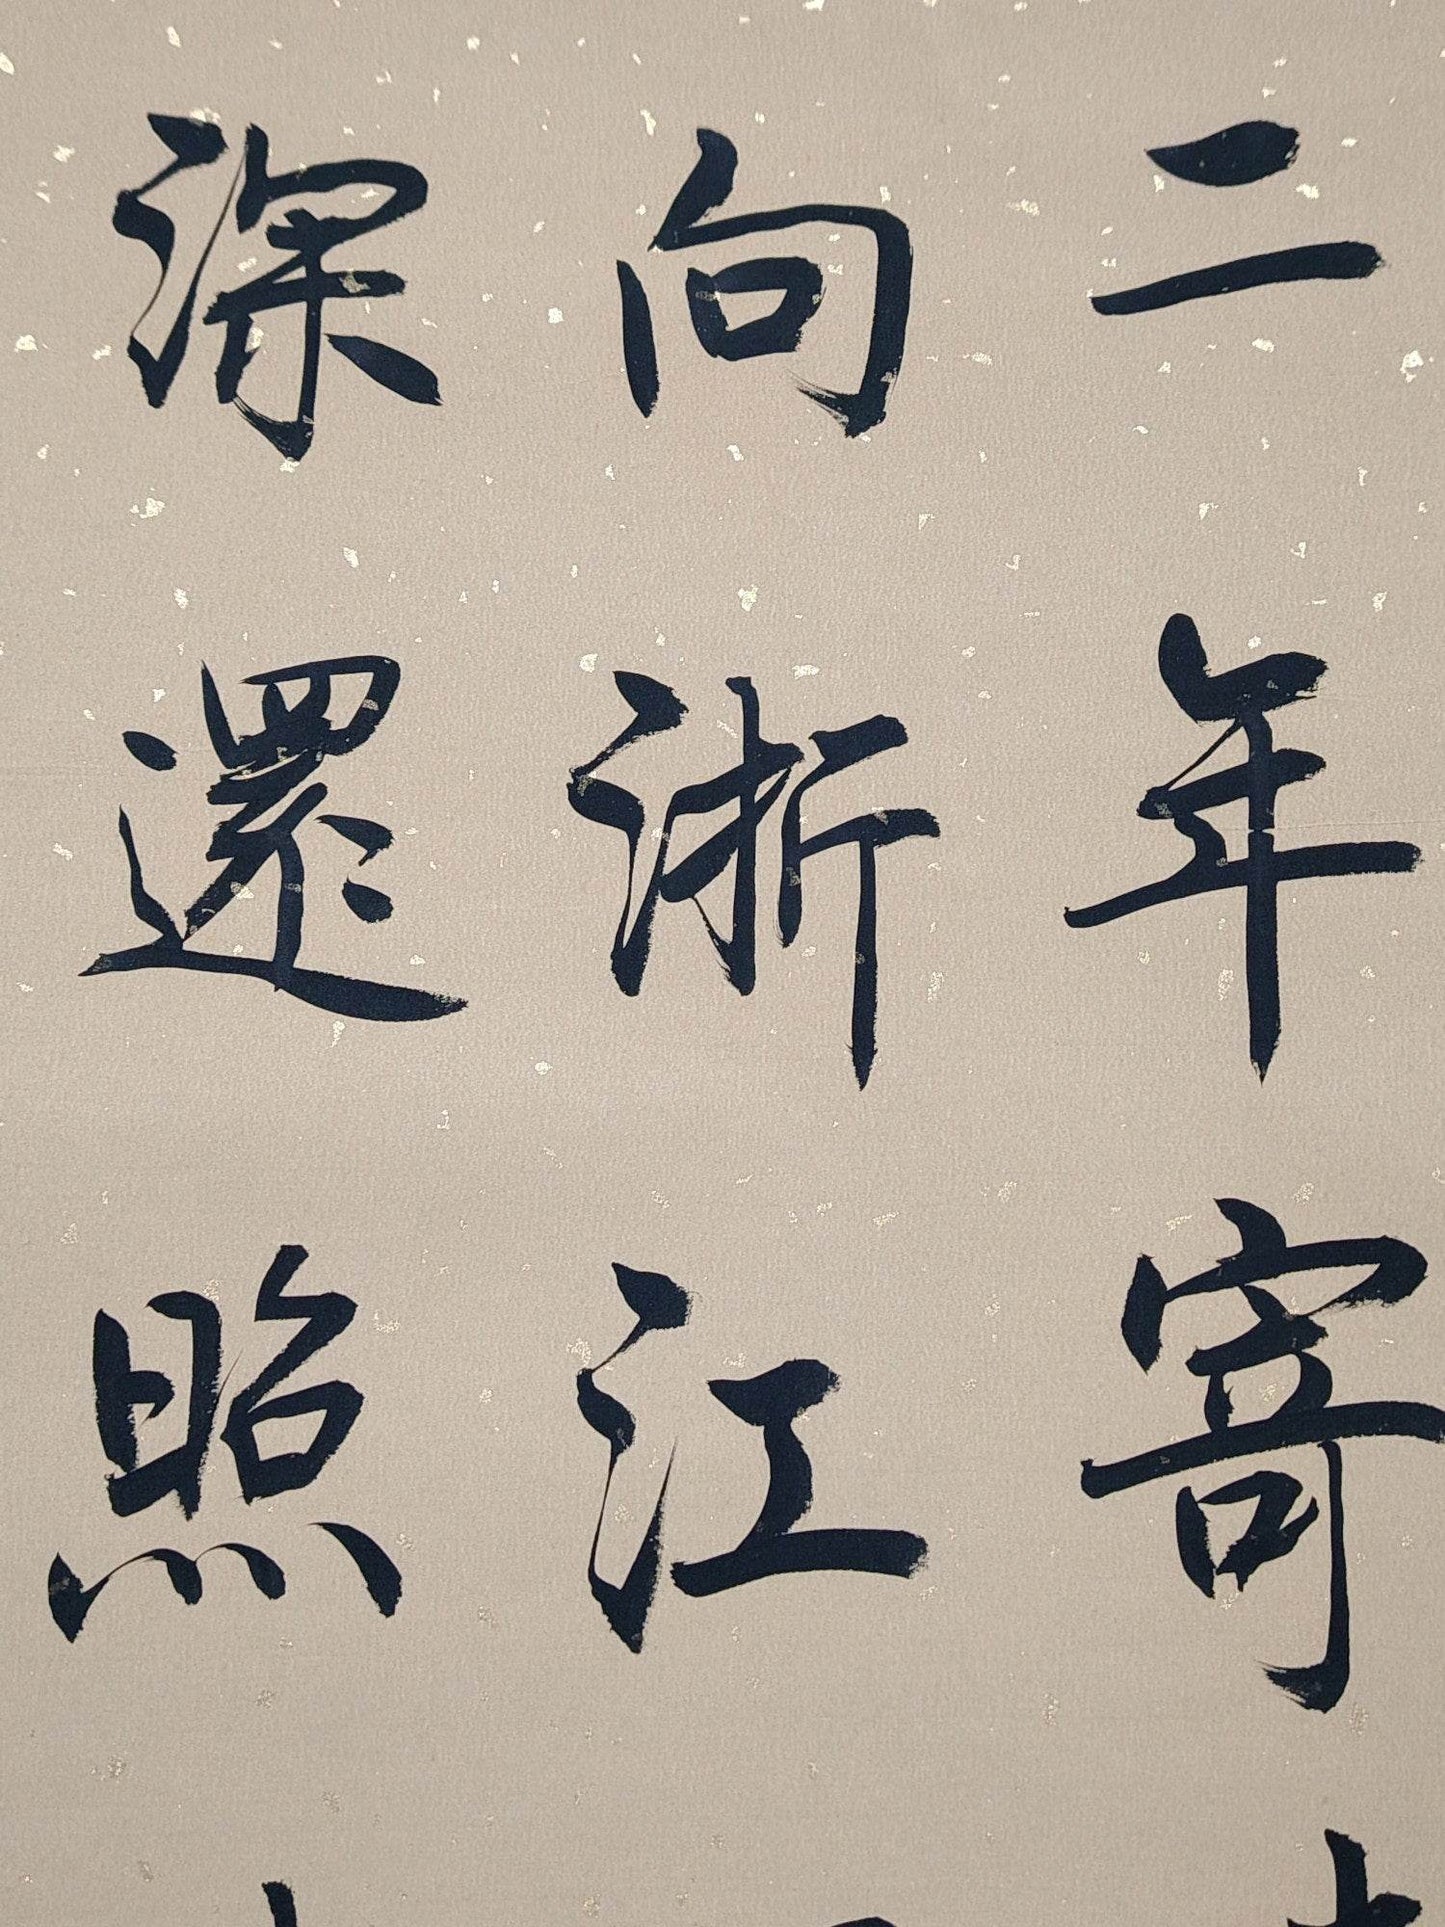 二年寄
向浙江
深還照